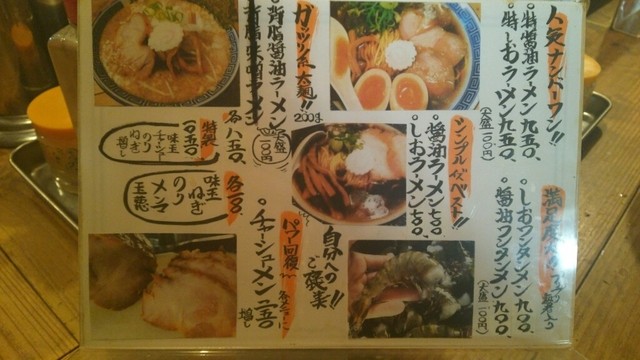 人気ナンバーワン!!
特醤油ラーメン九五〇、
特しおラーメン九五〇、
(大盛一〇〇円)
ガッツリ系太麺!!
200g
背脂醤油ラーメン
背脂味噌ラーメン
各八五〇、
(大盛一〇〇円)
特製
一〇五〇、
味玉
チャーシュー
のり
ねぎ
増し
シンプルイズベスト!!
醤油ラーメン七〇〇、
しおラーメン七〇〇、
各一〇〇、
味玉
ねぎ
のり
メンマ
満足度
しおワンタンメン九〇〇、
醤油ワンタンメン九〇〇、
(大盛一〇〇円)
自分への
ご褒美!!
パワー回復
チャーシューメン
増し